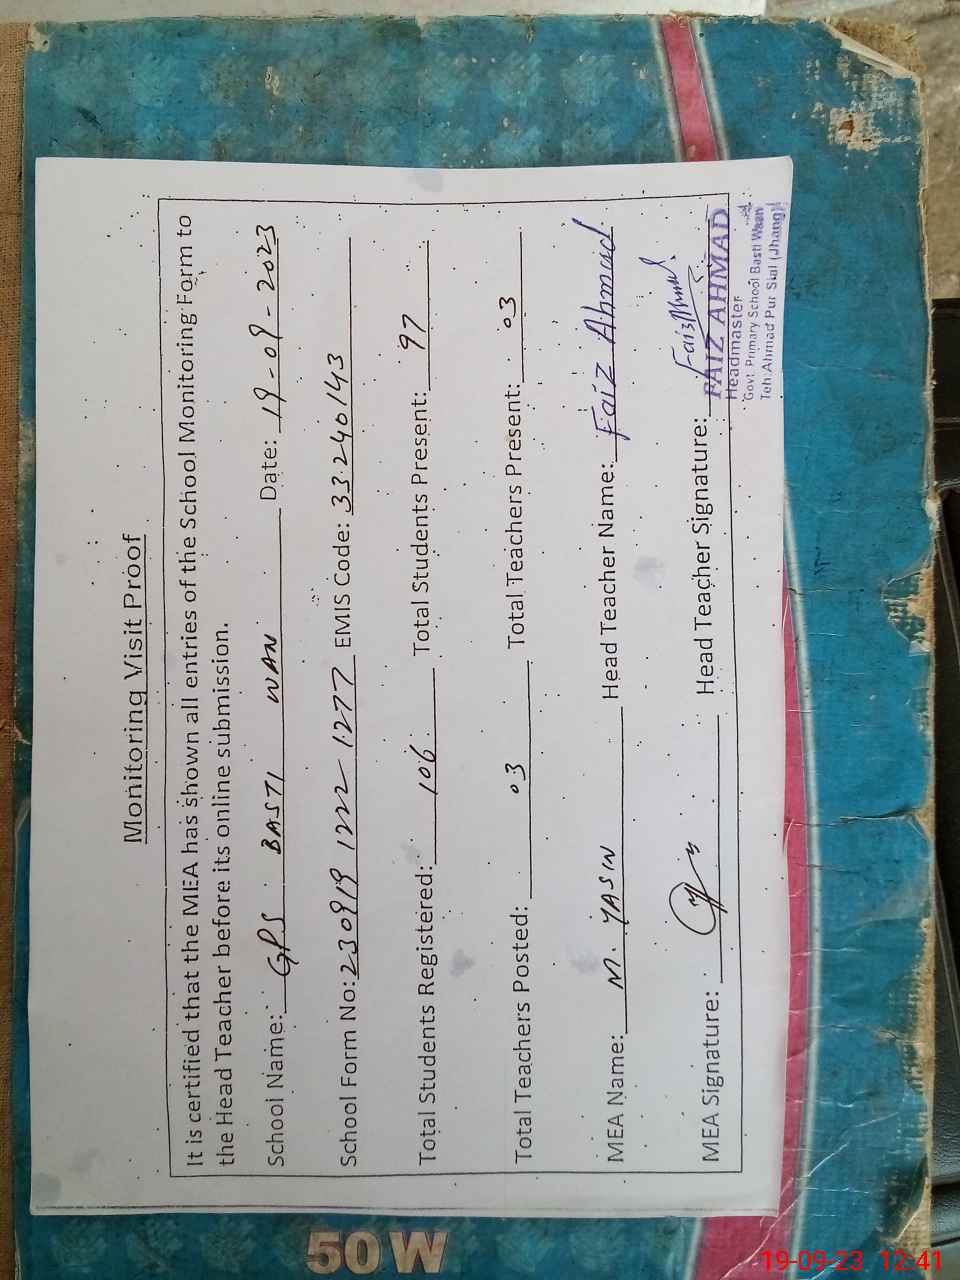 Monitoring Visit Proof
It is certified that the MEA has shown all entries of the School Monitoring Form to
the Head Teacher before its online submission.
School Name: GPS BASTI WAN Date: 19-09-2023
School Form No: 230919 1222 1277 EMIS Code: 33240143
Total Students Registered: 106 Total Students Present: 97
Total Teachers Posted: 03 Total Teachers Present: 03
MEA Name: M. YASIN Head Teacher Name: Faiz Ahmad
MEA Signature: Head Teacher Signature: Faiz Ahmad
FAIZ AHMAD
Headmaster
Govt. Primary School Basti Waan
Teh: Ahmad Pur Sial (Jhang)
50 W
19-09-23 12:41